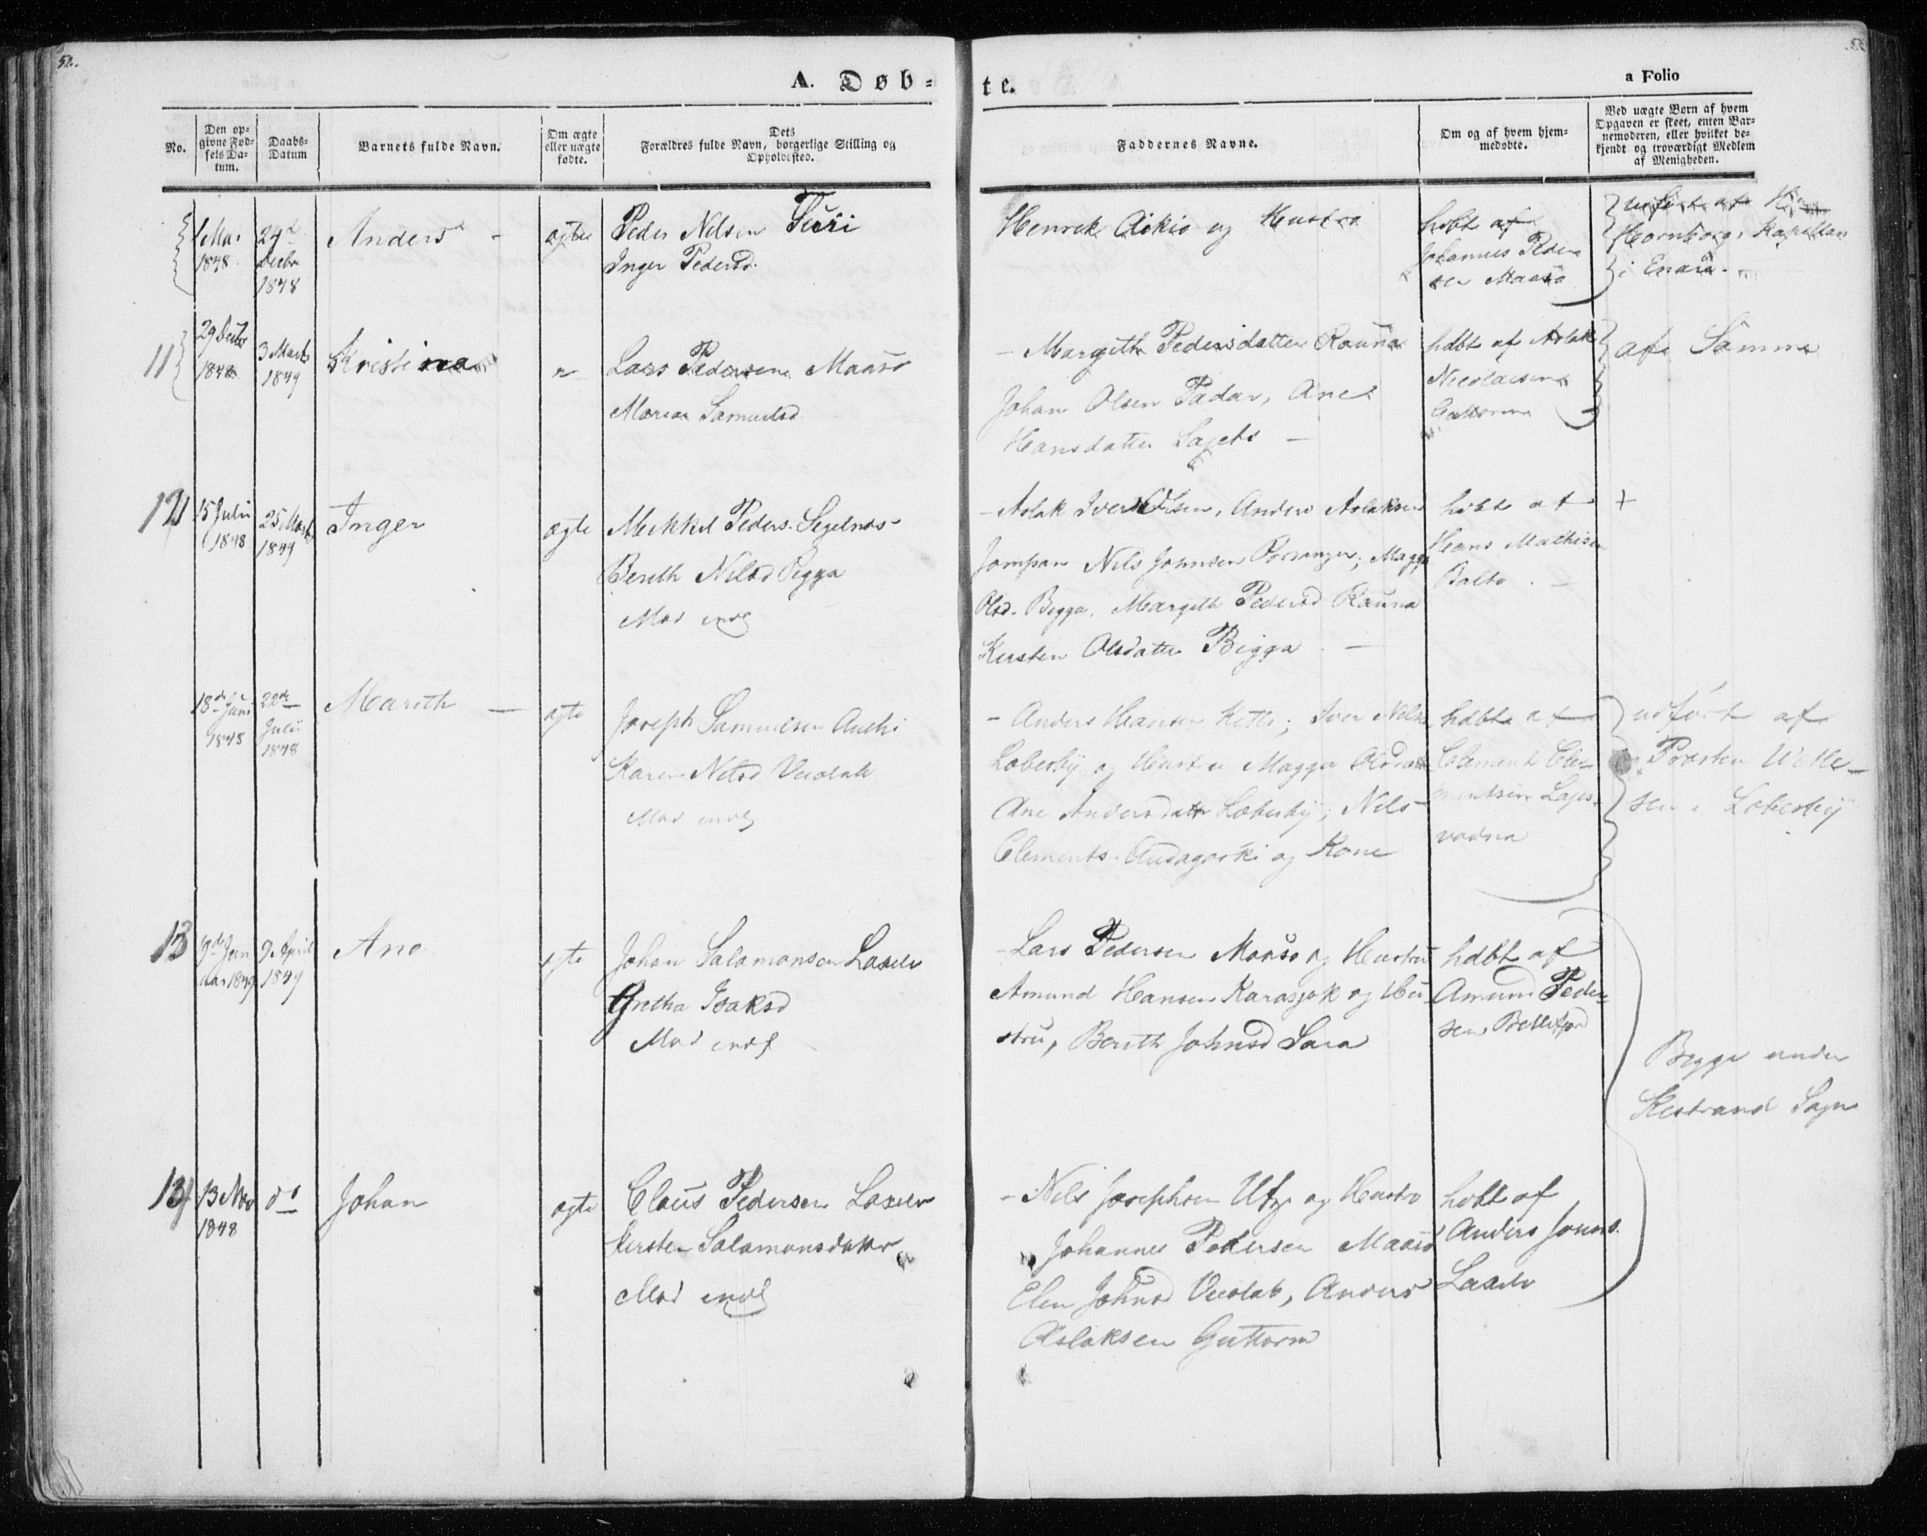 52.
A. Døb-
te.
a Folio
No.
Den op-
givne Fød-
sels Da-
tum.
Daabs-
Datum
Barnets fulde Navn.
Om ægte
eller uægte
fødte.
Dets
Forældres fulde Navn, borgerlige Stilling og
Opholdssted.
Faddernes Navne.
Om og af hvem hjem-
medøbte.
Ved uægte Børn af hvem
Opgaven er skeet, enten Bar-
nemoderen, eller hvilket be-
kjendt og troværdigt Medlem
af Menigheden.
1 Mai
1848
24de
Decbr
1848
Anders -
ægte
Peder Nilsen
Inger Pedersd.
Henrik Aikio og Hustro
hdbt af
Johannes Peder
sen Maasø
Hornborg, Kapellan
i Enare
11
29 Decbr
1848
3 Marts
1849
Kristina
"
Lars Pedersen Maasø
Maria Samuelsd
- Margith Pedersdatter Rauna
Johan Olsen Padar, Ane
Hansdatter
hdbt af Aslak
Nicolaisen
Guttorm
af Samme
12
15 Julii
1848
25 Marts
1849
Inger
ægte
Mikkel Peders. Segelnæs
Berith Nilsd Pigga
Mod indl
- Aslak Iversen, Anders Aslaksen
Jompan Nils Johnsen Porsanger, Magga
Olsd. Bigga, Margith Pedersd Rauna
Kirsten Olsdatter Bigga. -
hdbt af
Hans Mathisen
Balto. -
+
18de Juni
1848
22de
Julii
1848
Marith -
ægte
Joseph Samuelsen
Karen Nilsd Vuolab
Mod indl
- Anders Hansen Kitti; Iver Nilsen
Lebesby og Hustru Magga Olsdatter
Ane Andersdatter Lebesby; Nils
Clements. og Kone
hdbt af
Clement Cle-
mentsen
vadna
udført af
Præsten
sen i Lebesby
13
9de Jan
uar 1849
9 April
1849
Ane
ægte
Johan Salamonsen Laxelv
Gretha Isaksd
Mod indl
- Lars Pedersen Maasø og Hustru
Amund Hansen Karasjok og Hu-
stru, Berith Johnsd Sara
hdbt af
Amund Peder-
sen Billefjord
Begge under
Kistrand Sogn
14
13 Nov
1848
do
Johan
ægte
Claus Pedersen Laxelv
Kirsten Salamonsdatter
Mod indl
- Nils Josephsen Utzi og Hustro
Johannes Pedersen Maasø
Elen Johnsd Vuolab, Anders
Aslaksen Guttorm
hdbt af
Anders Jons.
Laxelv